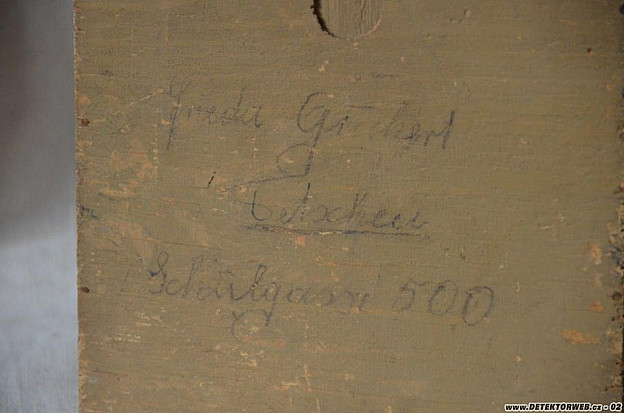 Frieda Günhert
Tetschen
Schulgasse 500
www.DETEKTORWEB.cz - 02